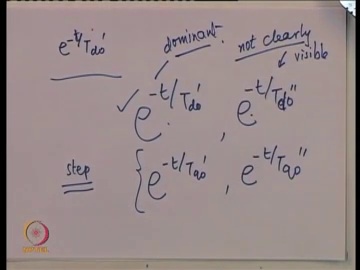 e^{-t/T_{do}'}
dominant.
not clearly
visible
e^{-t/T_{do}'} , e^{-t/T_{do}''}
step { e^{-t/T_{qo}'} , e^{-t/T_{qo}''}
NPTEL